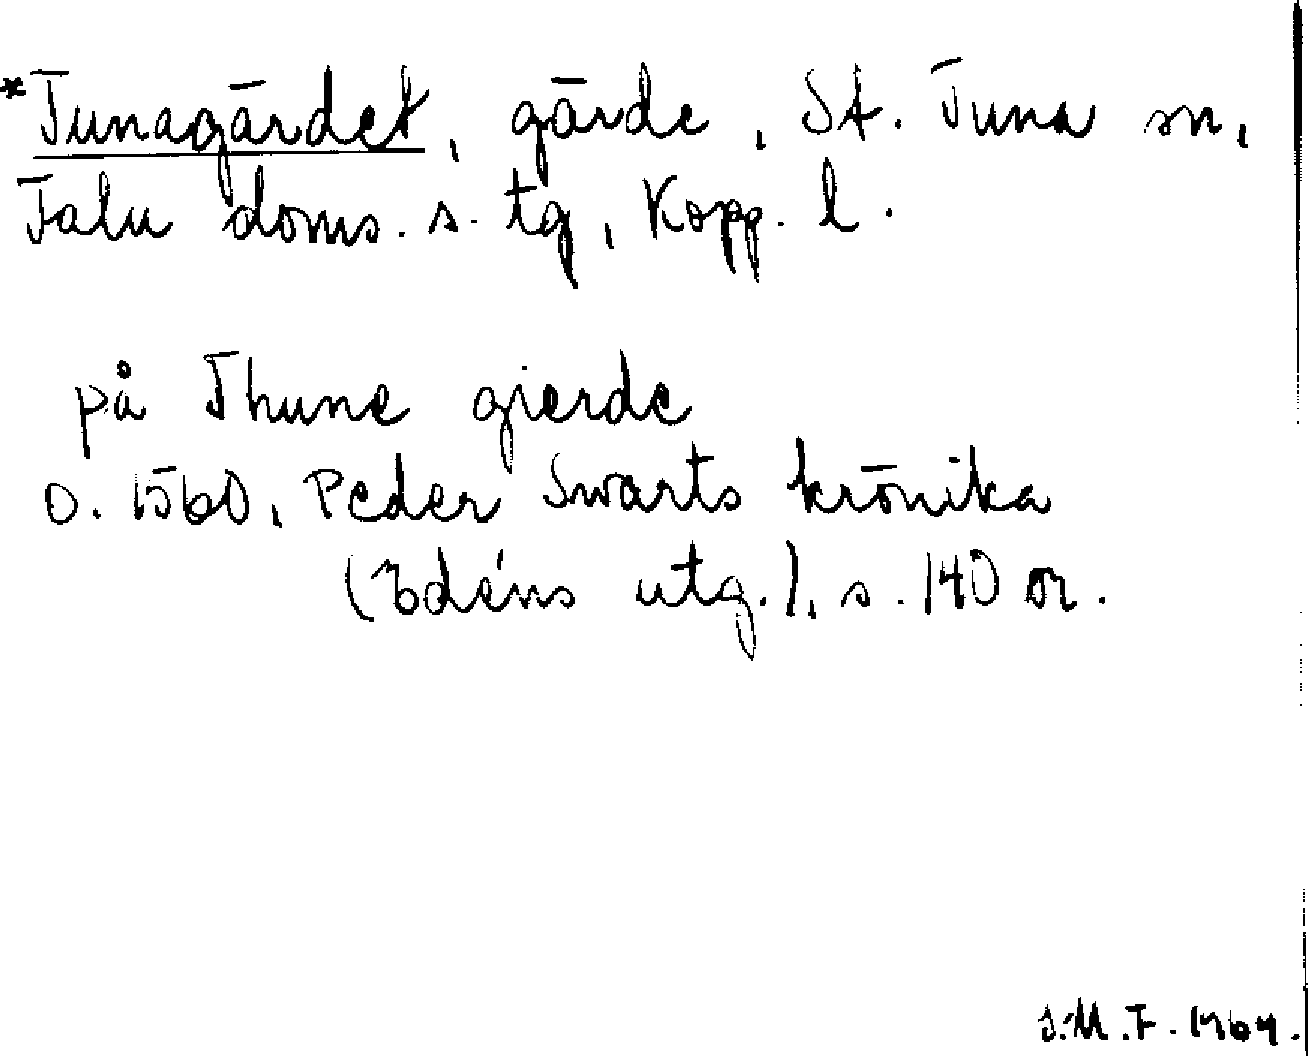 *Tunagärdet, gärde, St. Tuna sn,
Falu doms. s. tg, Kopp. l.
på Thune gierde
o. 1560, Peder Swarts krönika
(Edéns utg.), s. 140 or.
S.M.F. 1964.